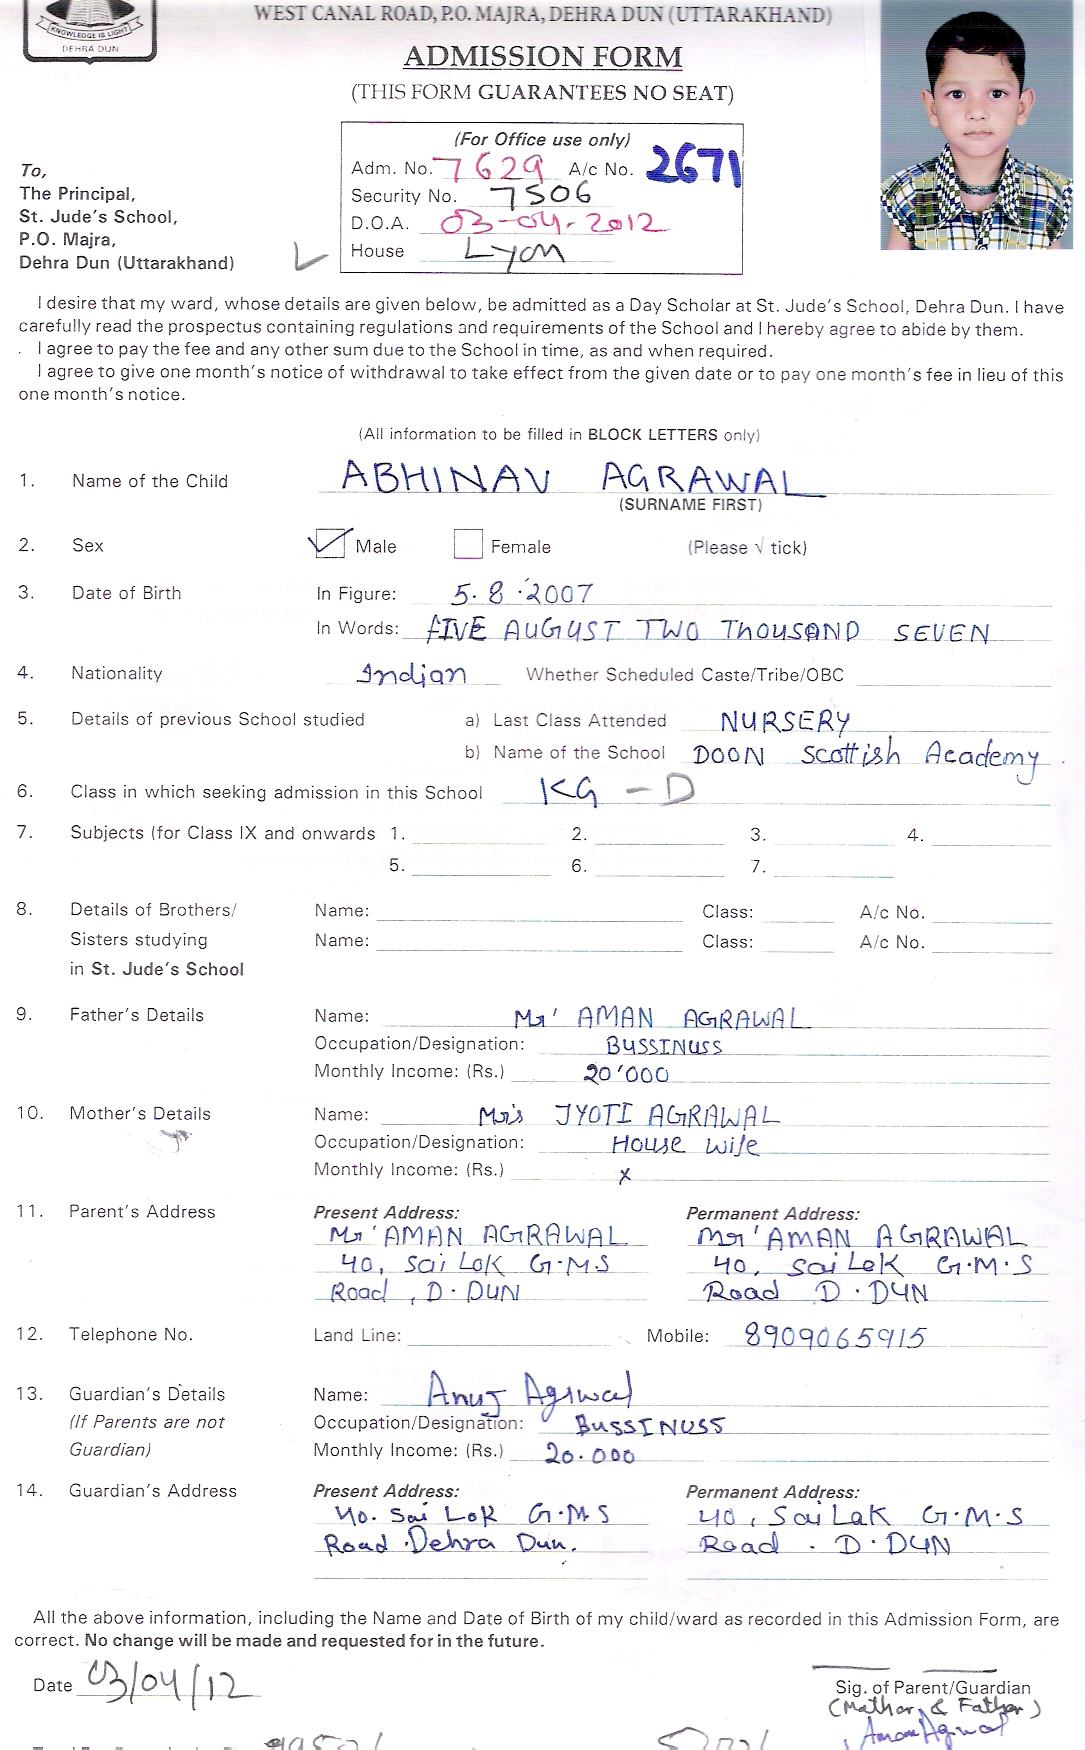 KNOWLEDGE IS LIGHT
DEHRA DUN
WEST CANAL ROAD, P.O. MAJRA, DEHRA DUN (UTTARAKHAND)
ADMISSION FORM
(THIS FORM GUARANTEES NO SEAT)
(For Office use only)
Adm. No. 7629 A/c No. 2671
Security No. 7506
D.O.A. 03-04-2012
House Lyon
To,
The Principal,
St. Jude's School,
P.O. Majra,
Dehra Dun (Uttarakhand)
I desire that my ward, whose details are given below, be admitted as a Day Scholar at St. Jude's School, Dehra Dun. I have
carefully read the prospectus containing regulations and requirements of the School and I hereby agree to abide by them.
I agree to pay the fee and any other sum due to the School in time, as and when required.
I agree to give one month's notice of withdrawal to take effect from the given date or to pay one month's fee in lieu of this
one month's notice.
(All information to be filled in BLOCK LETTERS only)
1. Name of the Child ABHINAV AGRAWAL
(SURNAME FIRST)
2. Sex Male Female (Please √ tick)
3. Date of Birth In Figure: 5.8.2007
In Words: FIVE AUGUST TWO THOUSAND SEVEN
4. Nationality Indian Whether Scheduled Caste/Tribe/OBC
5. Details of previous School studied a) Last Class Attended NURSERY
b) Name of the School DOON Scottish Academy
6. Class in which seeking admission in this School KG - D
7. Subjects (for Class IX and onwards 1. 2. 3. 4.
5. 6. 7.
8. Details of Brothers/ Name: Class: A/c No.
Sisters studying Name: Class: A/c No.
in St. Jude's School
9. Father's Details Name: Mr' AMAN AGRAWAL
Occupation/Designation: BUSSINUSS
Monthly Income: (Rs.) 20'000
10. Mother's Details Name: Mrs JYOTI AGRAWAL
Occupation/Designation: House wife
Monthly Income: (Rs.) x
11. Parent's Address Present Address: Permanent Address:
Mr' AMAN AGRAWAL Mr' AMAN AGRAWAL
40, Sai Lok G.M.S 40, Sai Lok G.M.S
Road, D.DUN Road D.DUN
12. Telephone No. Land Line: Mobile: 8909065915
13. Guardian's Details Name: Anuj Agrwal
(If Parents are not Occupation/Designation: BUSSINUSS
Guardian) Monthly Income: (Rs.) 20.000
14. Guardian's Address Present Address: Permanent Address:
40. Sai Lok G.M.S 40, Sai Lak G.M.S
Road Dehra Dun. Road . D.DUN
All the above information, including the Name and Date of Birth of my child/ward as recorded in this Admission Form, are
correct. No change will be made and requested for in the future.
Date 03/04/12
Sig. of Parent/Guardian
(Mathar & Father)
Aman Agrwal